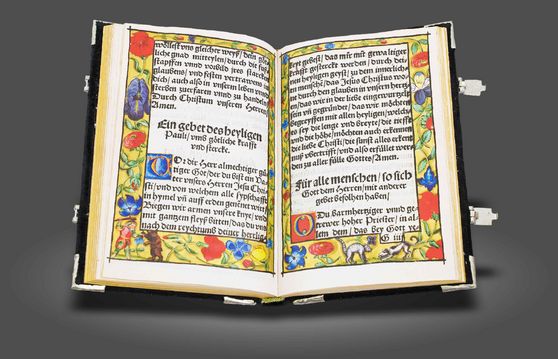 wöllest vns gleicher weyß/ den
lichē gnad mitteylen/ durch die fuß
stapffen vnnd vorbild jres starcken
glaubens/ vnd festen vertrawens in
dich/ auch also in vnsern leben vnnd
sterben zuerfaren vnnd zu handeln
Durch Christum vnsern Herren
Amen.
Ein gebet des heyligen
Pauli/ vmb götliche krafft
vnd sterck.
O Du Herr almechtiger gü-
tiger Got/ der du bist ein Va-
ter vnsers Herren Jesu Chri-
sti/ vnd von welchem alle
in hymel vñ auff erden genent wirt/
Biegen wir armen vnsere knye/ vnnd
mit gantzem fleyß bitten/ das du vns
nach dem reychtumb deiner herrlig-
keyt gebest/ das mit gewaltiger
krafft gesterckt werden/ durch dei-
nen heyligen geyst/ zu dem innerlichē
menschē/ das Jesus Christus wo-
ne durch den glauben in vnsern hertzē
den/ das wir in der liebe eingewurtzelt
sein vñ gegründet/ das wir möchten
begreyffen mit allen heyligen/ welchs
es sey die lenge vnd breyte/ die tieffe
vnd die höhe/ möchten auch erkennē
die liebe Christi/ die sunst alles erkent-
nuß vbertrifft/ vnd also erfüllet wer-
den zu aller fülle Gottes/ Amen.
Für alle menschen/ so sich
Gott dem Herren/ mit anderer
gebet befolhen haben/
O Du Barmhertziger vnnd ge-
trewer hoher Priester/ in al-
lem dem/ das bey Gott
G iiij